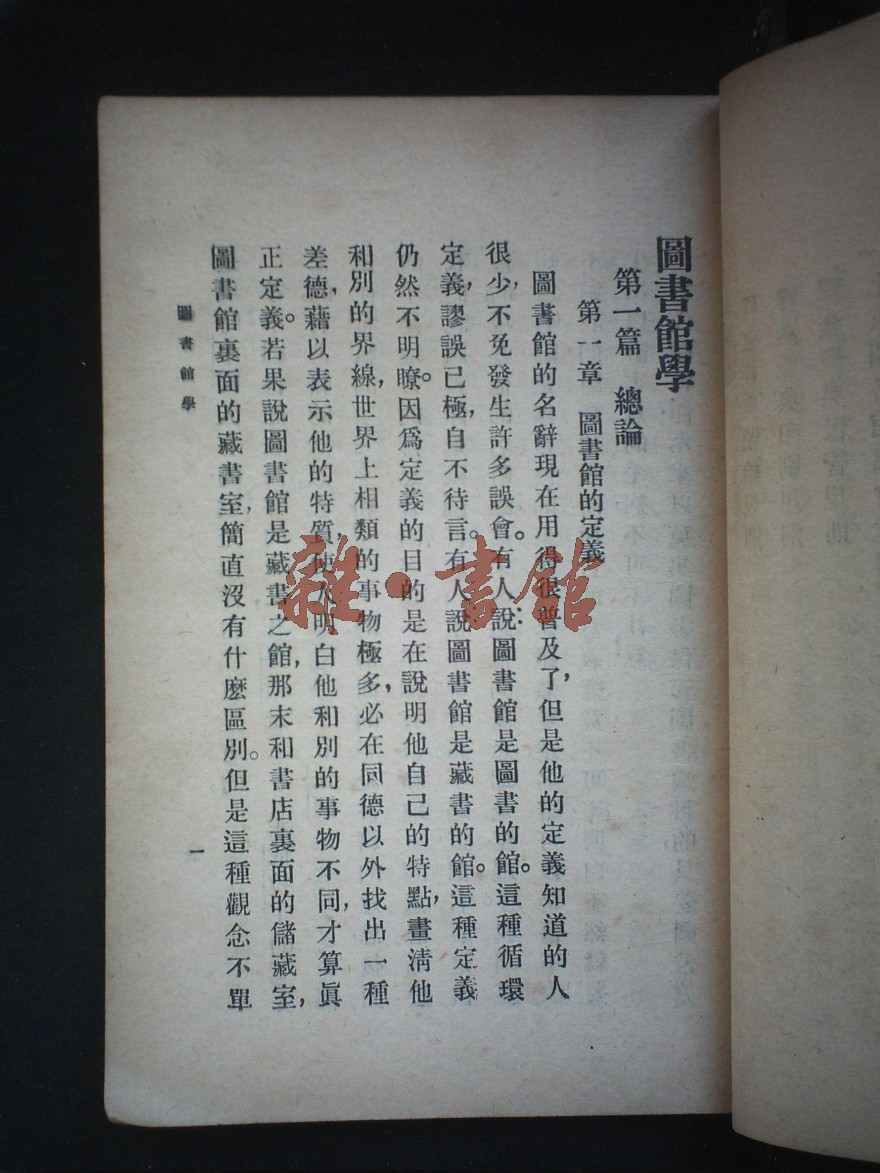 圖書館學
第一篇　總論
第一章　圖書館的定義
圖書館的名辭現在用得很普及了，但是他的定義知道的人
很少，不免發生許多誤會。有人說：圖書館是圖書的館。這種循環
定義，謬誤已極，自不待言。有人說：圖書館是藏書的館。這種定義
仍然不明瞭。因爲定義的目的是在說明他自己的特點，畫淸他
和別的界線，世界上相類的事物極多，必在同德以外找出一種
差德，藉以表示他的特質，使人明白他和別的事物不同，才算眞
正定義。若果說圖書館是藏書之館，那末和書店裏面的儲藏室，
圖書館裏面的藏書室，簡直沒有什麽區別。但是這種觀念不單
圖書館學
一
雜·書館